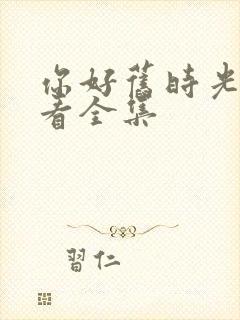 你好舊時光
看全集
習仁